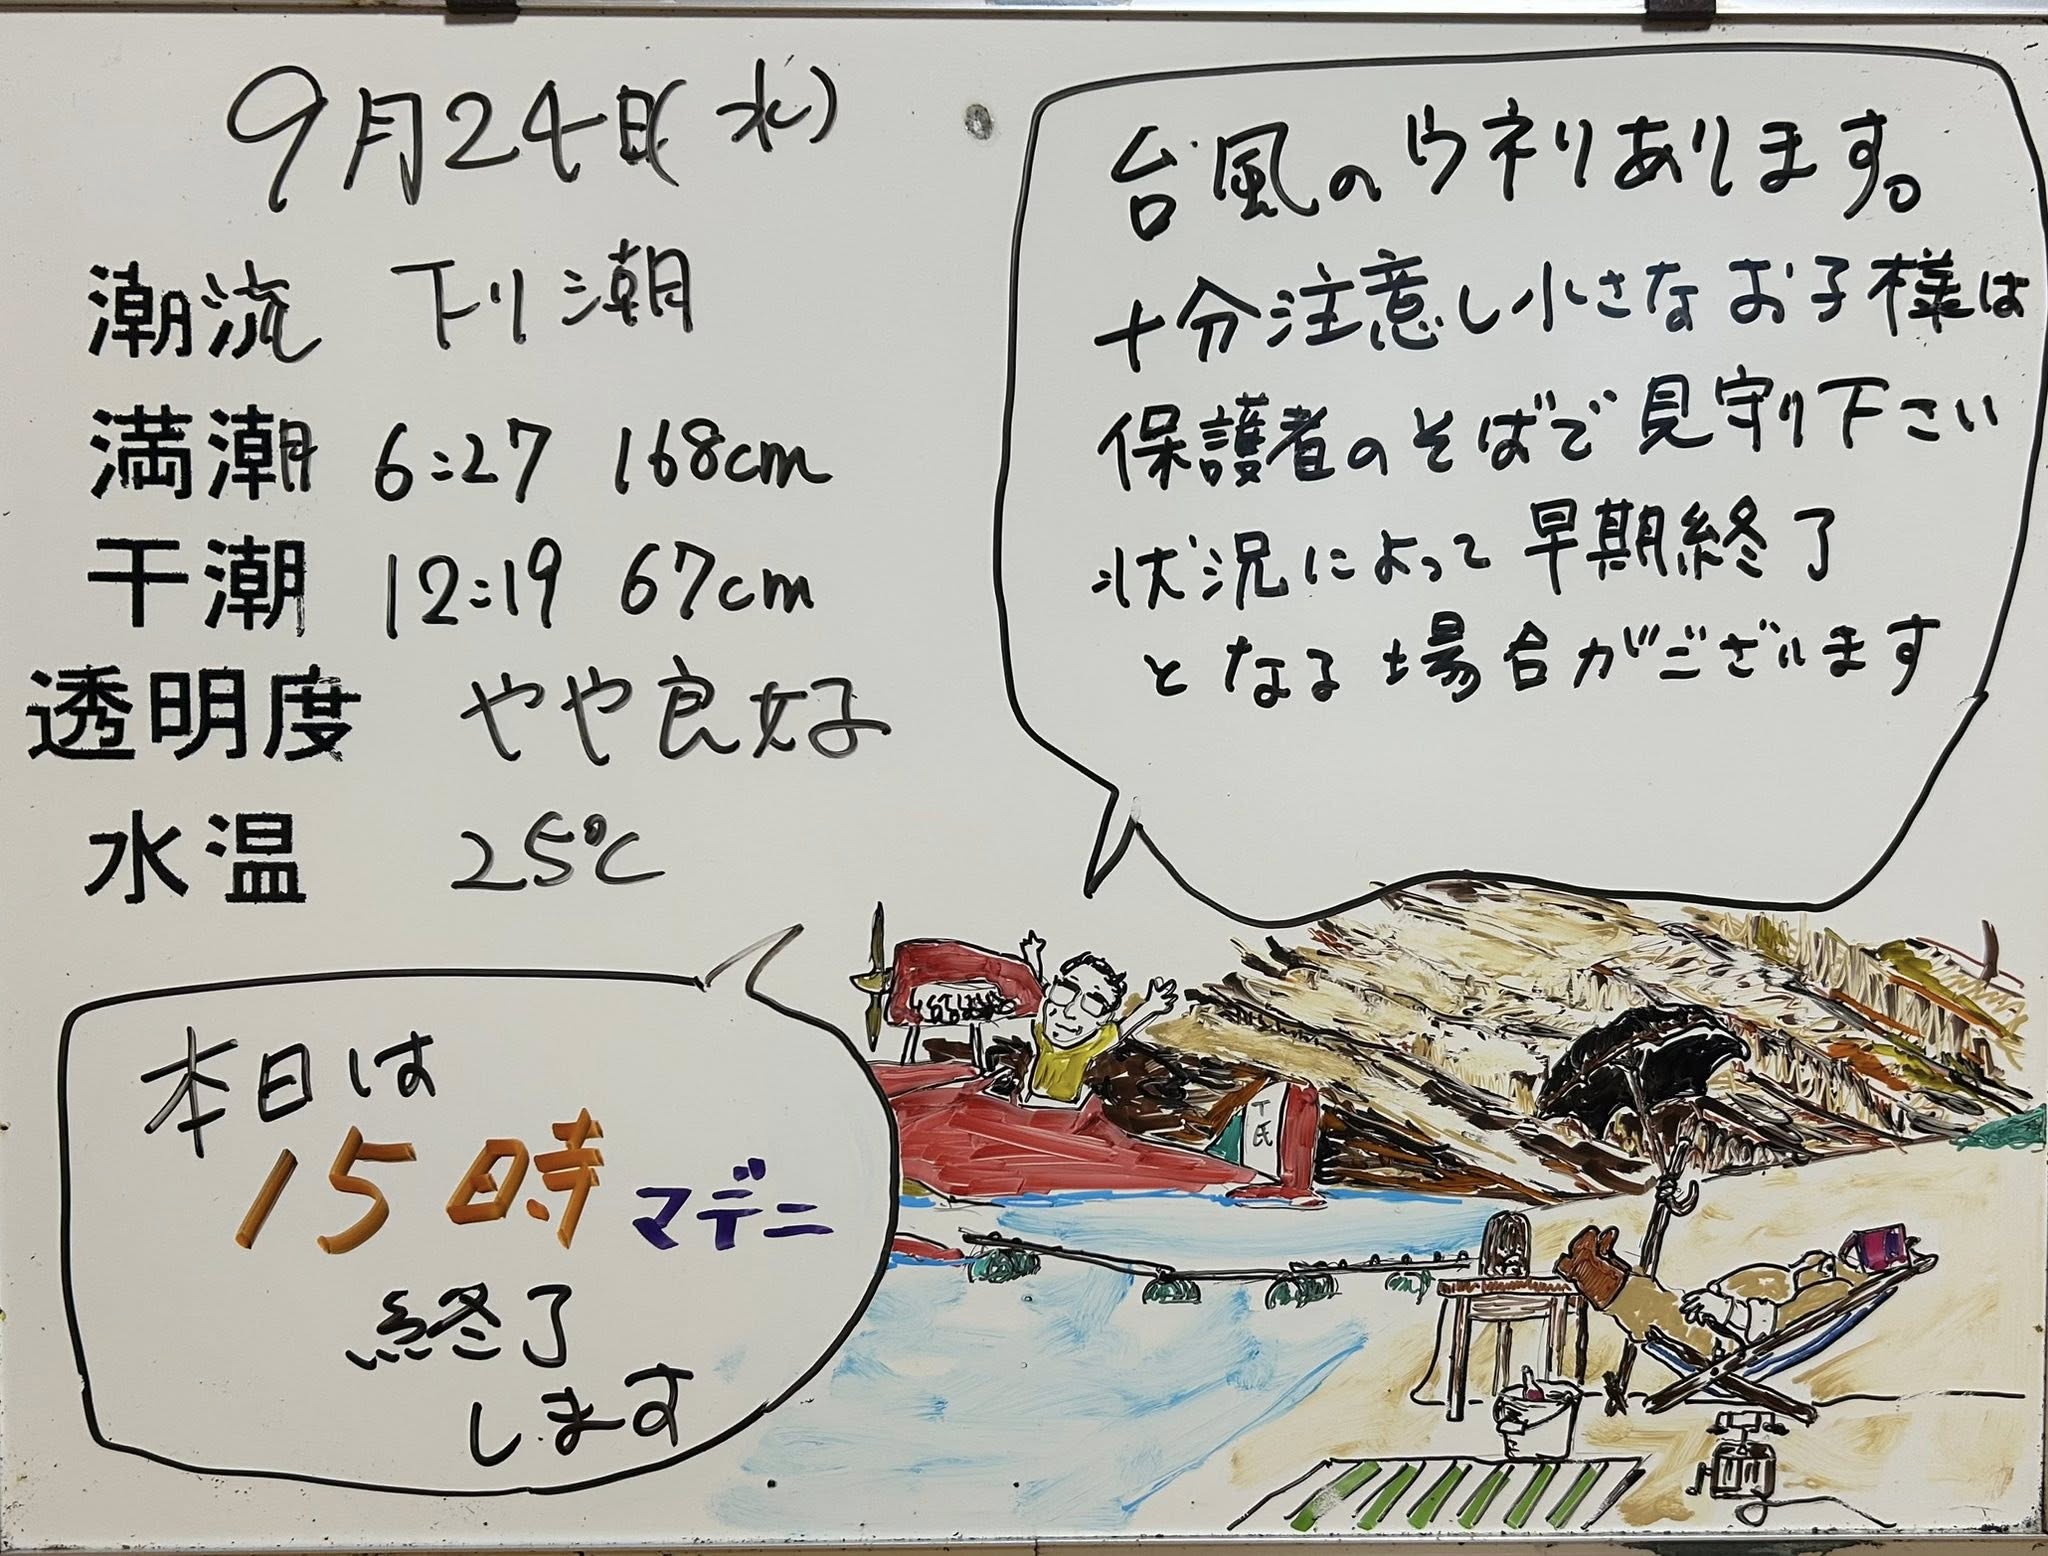 9月24日(水)
潮流 下り潮
満潮 6:27 168cm
干潮 12:19 67cm
透明度 やや良好
水温 25℃
台風のウネリあります。
十分注意し小さなお子様は
保護者のそばで見守り下さい
状況によって早期終了
となる場合がございます
本日は
15時マデニ
終了
します
T氏